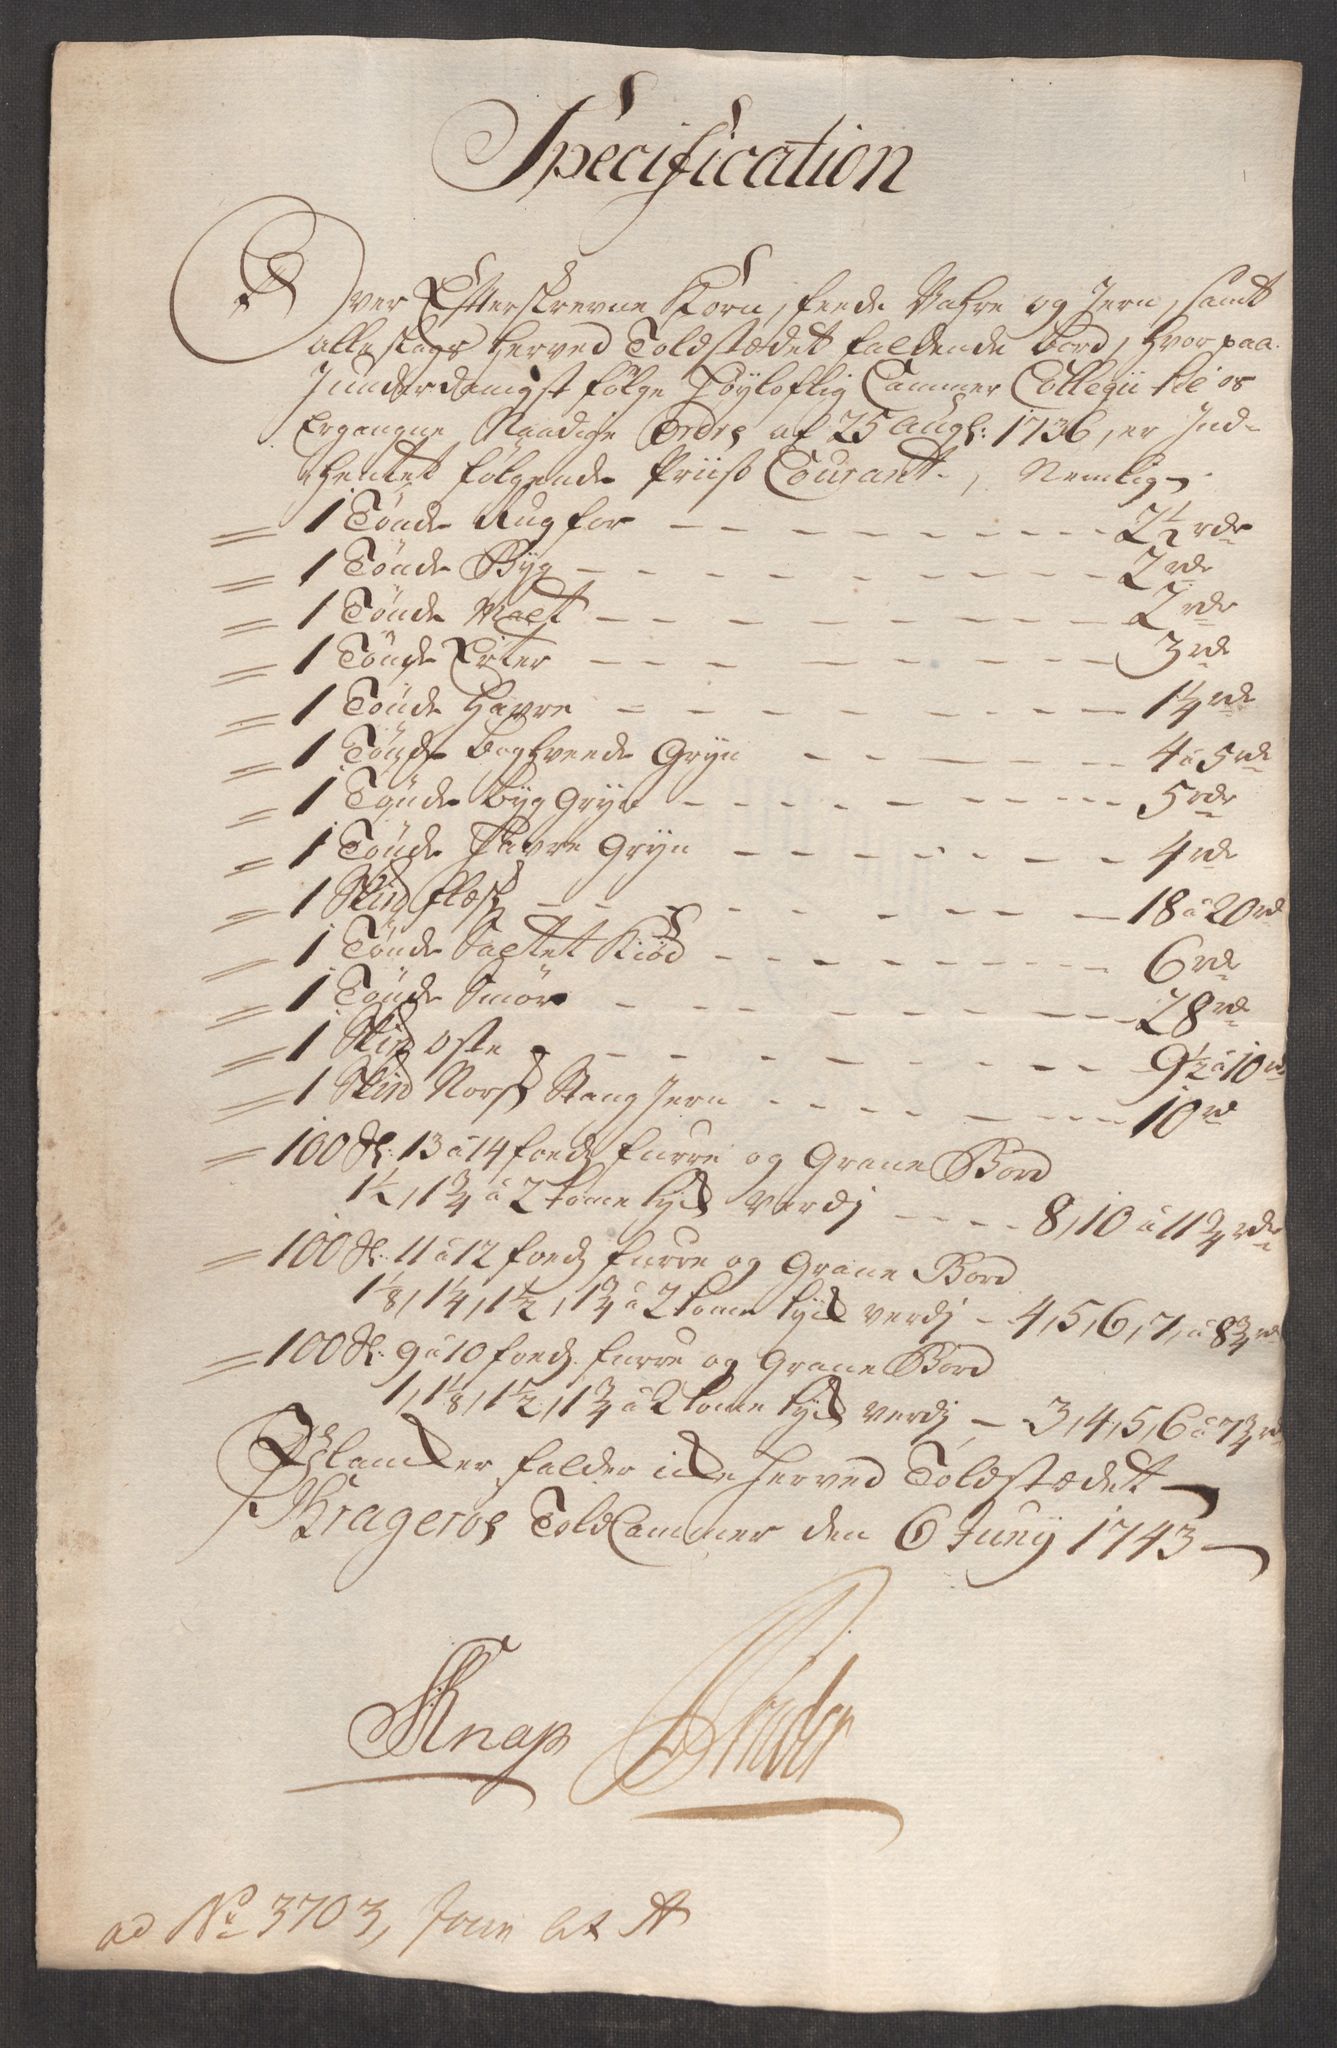 Specification
Over Efterskrevne Korn, feede Vahre og Jern, samt
alle slags herved Toldstædet faldende bord, hvor paa
I underdanigst følge Høyloflig Cammer Collegii til os
Ergangne Naadige Ordre af 25 Aug: 1736, er Ind-
hentet følgende Priis Courant, Nemlig
1 Tønde Rug for 2½ rdr
1 Tønde Byg 2 rdr
1 Tønde Malt 2 rdr
1 Tønde Erter 3 rdr
1 Tønde Havre 1¼ rdr
1 Tønde boghveede Gryn 4 a 5 rdr
1 Tønde byg Gryn 5 rdr
1 Tønde Havre Gryn 4 rdr
1 Skpd flesk 18 a 20 rdr
1 Tønde Saltet Kiød 6 rdr
1 Tønde Smør 28 rdr
1 Skpd oste 9½ a 10 rdr
1 Skpd Norsk Stang Jern 10 rdr
100 st: 13 a 14 foeds furre og Grane Bord
1½, 1¾ a 2 tome tyck verdj 8, 10 a 11¾ rdr
100 st: 11 a 12 foeds furre og Grane Bord
1⅛, 1¼, 1½, 1¾ a 2 tome tyck verdj 4, 5, 6, 7, a 8¾ rdr
100 st: 9 a 10 foeds furre og Grane Bord
1, 1⅛, 1½, 1¾ a 2 tome tyck verdj 3, 4, 5, 6 a 7¾ rdr
Plancker falder icke herved Toldstædet
Krageröe Told Cammer den 6 Juny 1743
Knap
ad No 3703, Jour Lit A